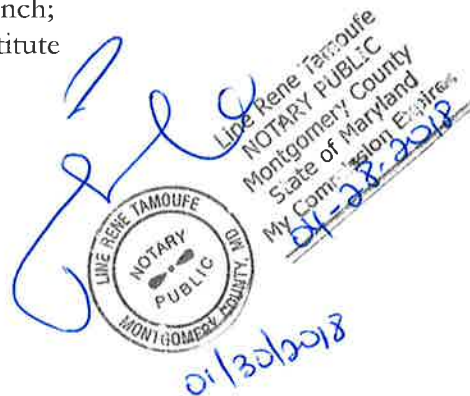 nch;
titute
Line Rene Tamoufe
NOTARY PUBLIC
Montgomery County
State of Maryland
My Commission Expires
04-28-2018
LINE RENE TAMOUFE
NOTARY
PUBLIC
MONTGOMERY COUNTY, MD
01/30/2018